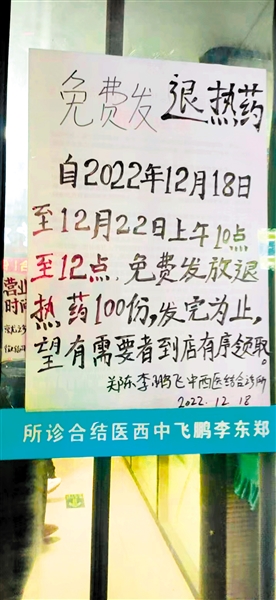 免费发退热药
自2022年12月18日
至12月22日上午10点
至12点,免费发放退
热药100份,发完为止,
望有需要者到店有序领取。
郑东李鹏飞中西医结合诊所
2022.12.18
营业
时间
郑东李鹏飞中西医结合诊所